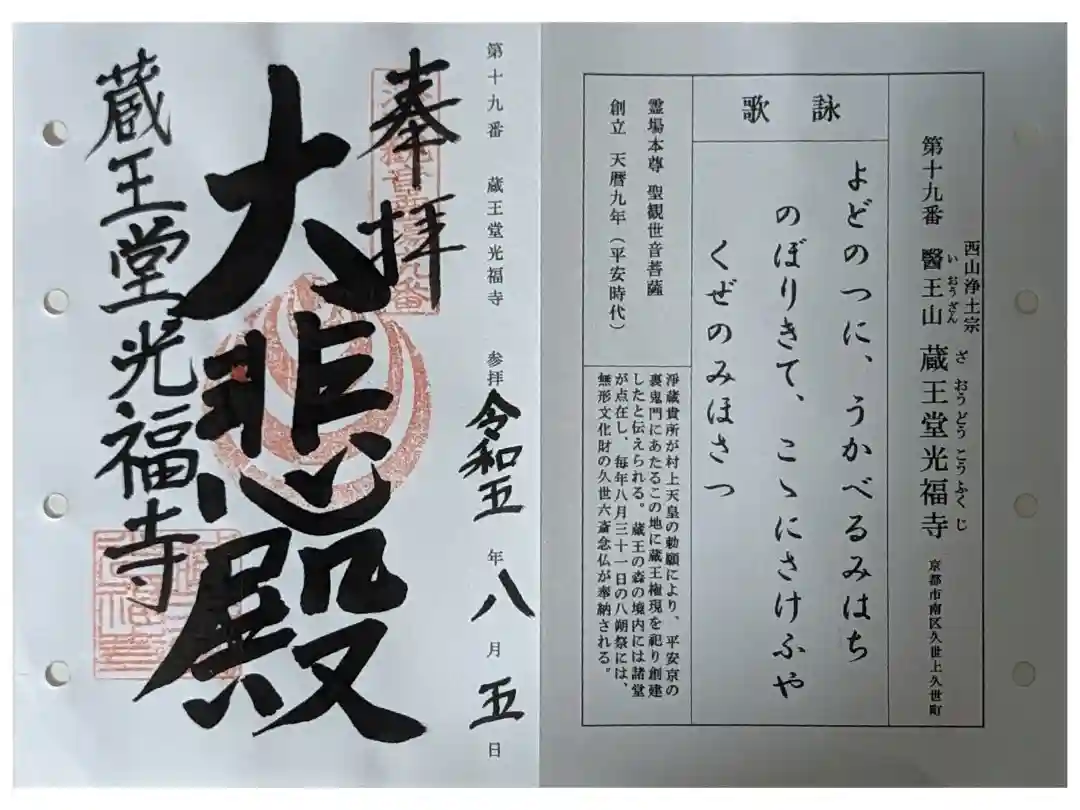 第十九番 西山浄土宗 醫王山 蔵王堂光福寺 京都市南区久世上久世町
いおうざん ざおうどうこうふくじ
詠歌
よどのつに、うかべるみはち
のぼりきて、こゝにさけふや
くぜのみほさつ
霊場本尊 聖観世音菩薩
創立 天暦九年(平安時代)
浄蔵貴所が村上天皇の勅願により、平安京の
裏鬼門にあたるこの地に蔵王権現を祀り創建
したと伝えられる。蔵王の森の境内には諸堂
が点在し、毎年八月三十一日の八朔祭には、
無形文化財の久世六斎念仏が奉納される。
第十九番 蔵王堂光福寺 参拝 令和五年八月五日
奉拝
大悲殿
蔵王堂光福寺